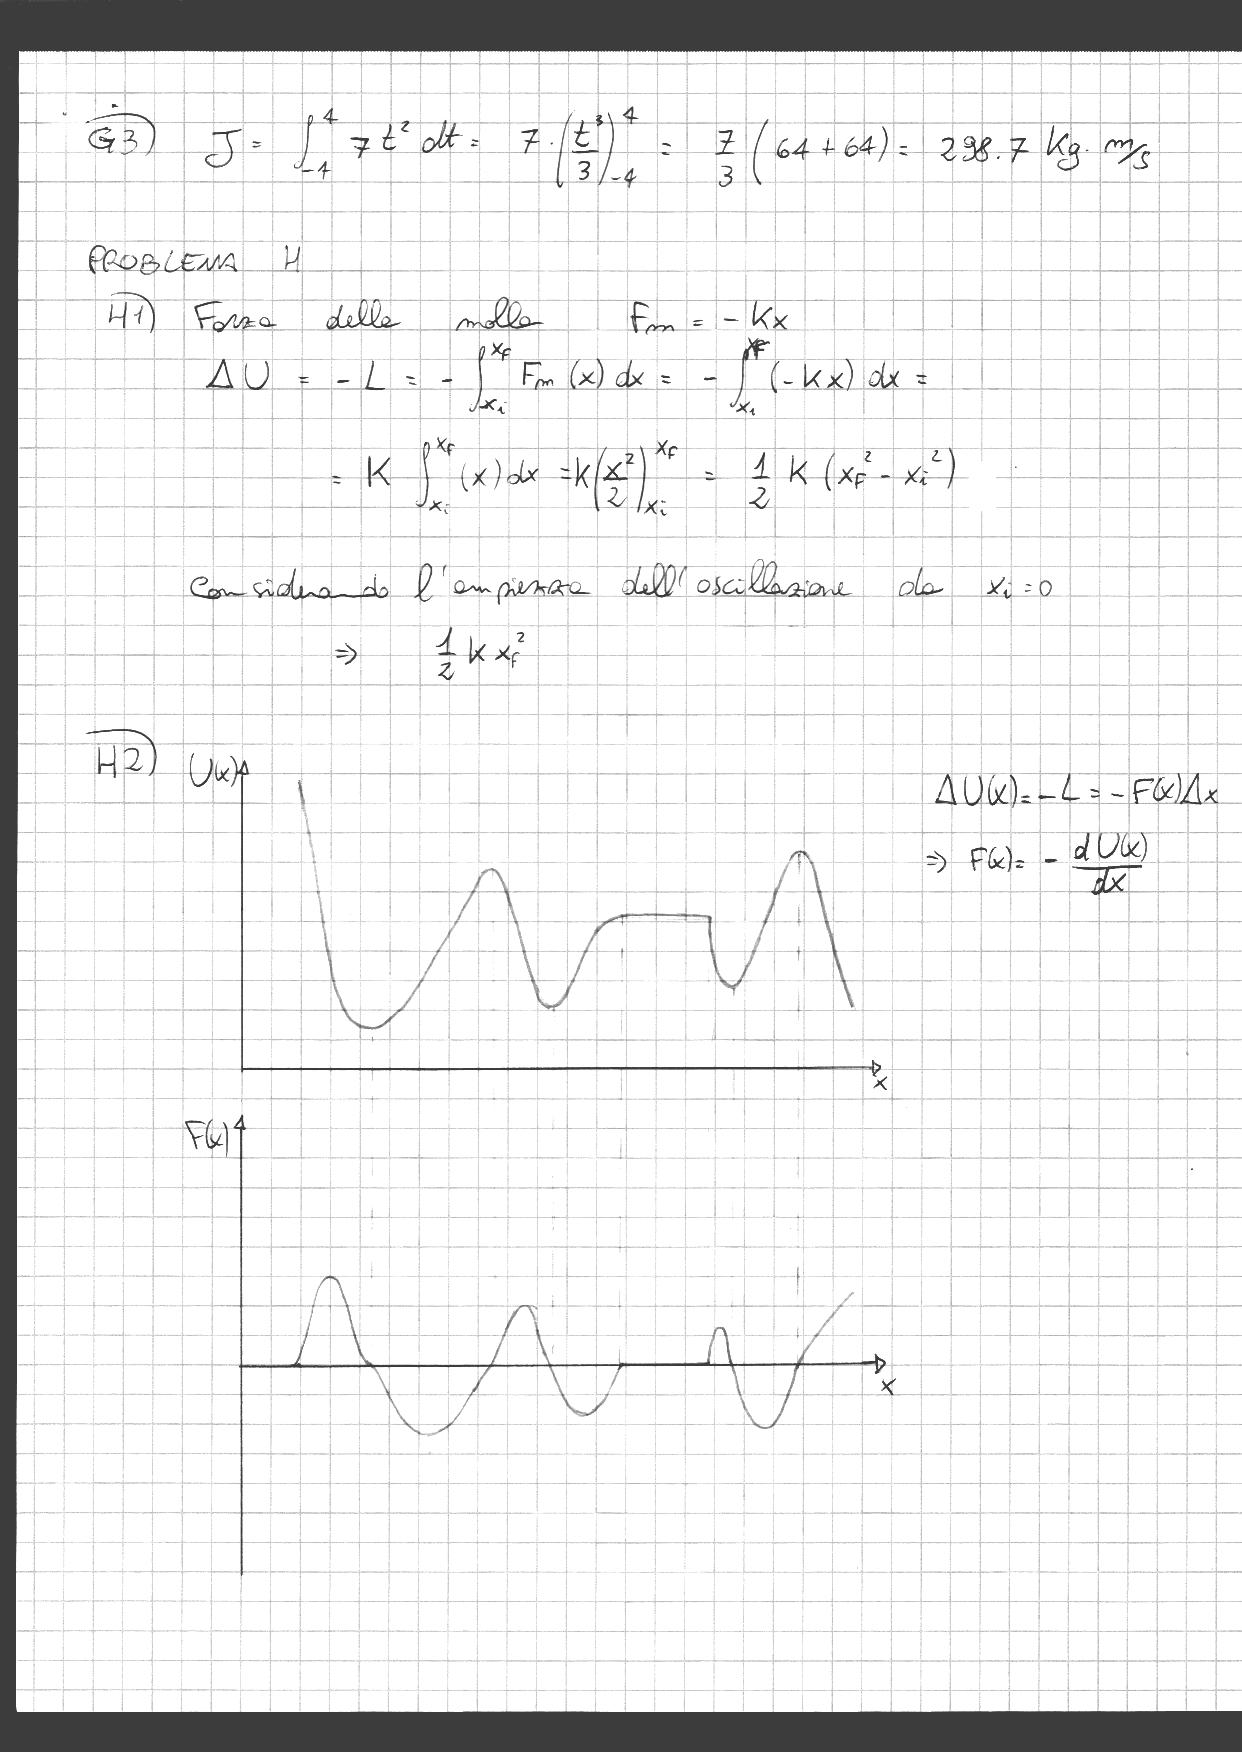 G3) J = ∫_{-4}^{4} 7 t² dt = 7·(t³/3)_{-4}^{4} = 7/3 (64+64) = 298.7 Kg·m/s
PROBLEMA H
H1) Forza della molla Fm = -Kx
ΔU = -L = -∫_{xi}^{xf} Fm(x) dx = -∫_{xi}^{xf} (-Kx) dx =
= K ∫_{xi}^{xf} (x) dx = K(x²/2)_{xi}^{xf} = 1/2 K (xf² - xi²)
Considerando l'ampiezza dell'oscillazione da xi = 0
⇒ 1/2 K xf²
H2) U(x)
ΔU(x) = -L = -F(x)Δx
⇒ F(x) = - dU(x)/dx
x
F(x)
x